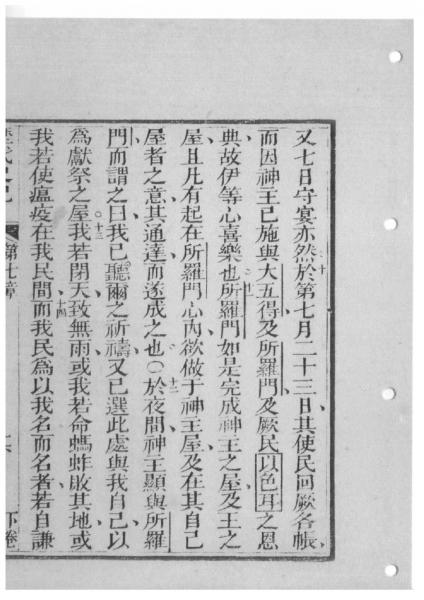 又七日守宴亦然於第七月二十三日其使民回厥各帳
而因神主已施與大五得及所羅門及厥民以色耳之恩
典故伊等心喜樂也所羅門如是完成神主之屋及王之
屋且凡有起在所羅門心內欲做于神主屋及在其自己
屋者之意其通達而遂成之也〇於夜間神主顯與所羅
門而謂之曰我已聽爾之祈禱又已選此處與我自己以
為獻祭之屋我若閉天致無雨或我若命螞蚱敗其地或
我若使瘟疫在我民間而我民為以我名而名者若自謙
第七章
下卷